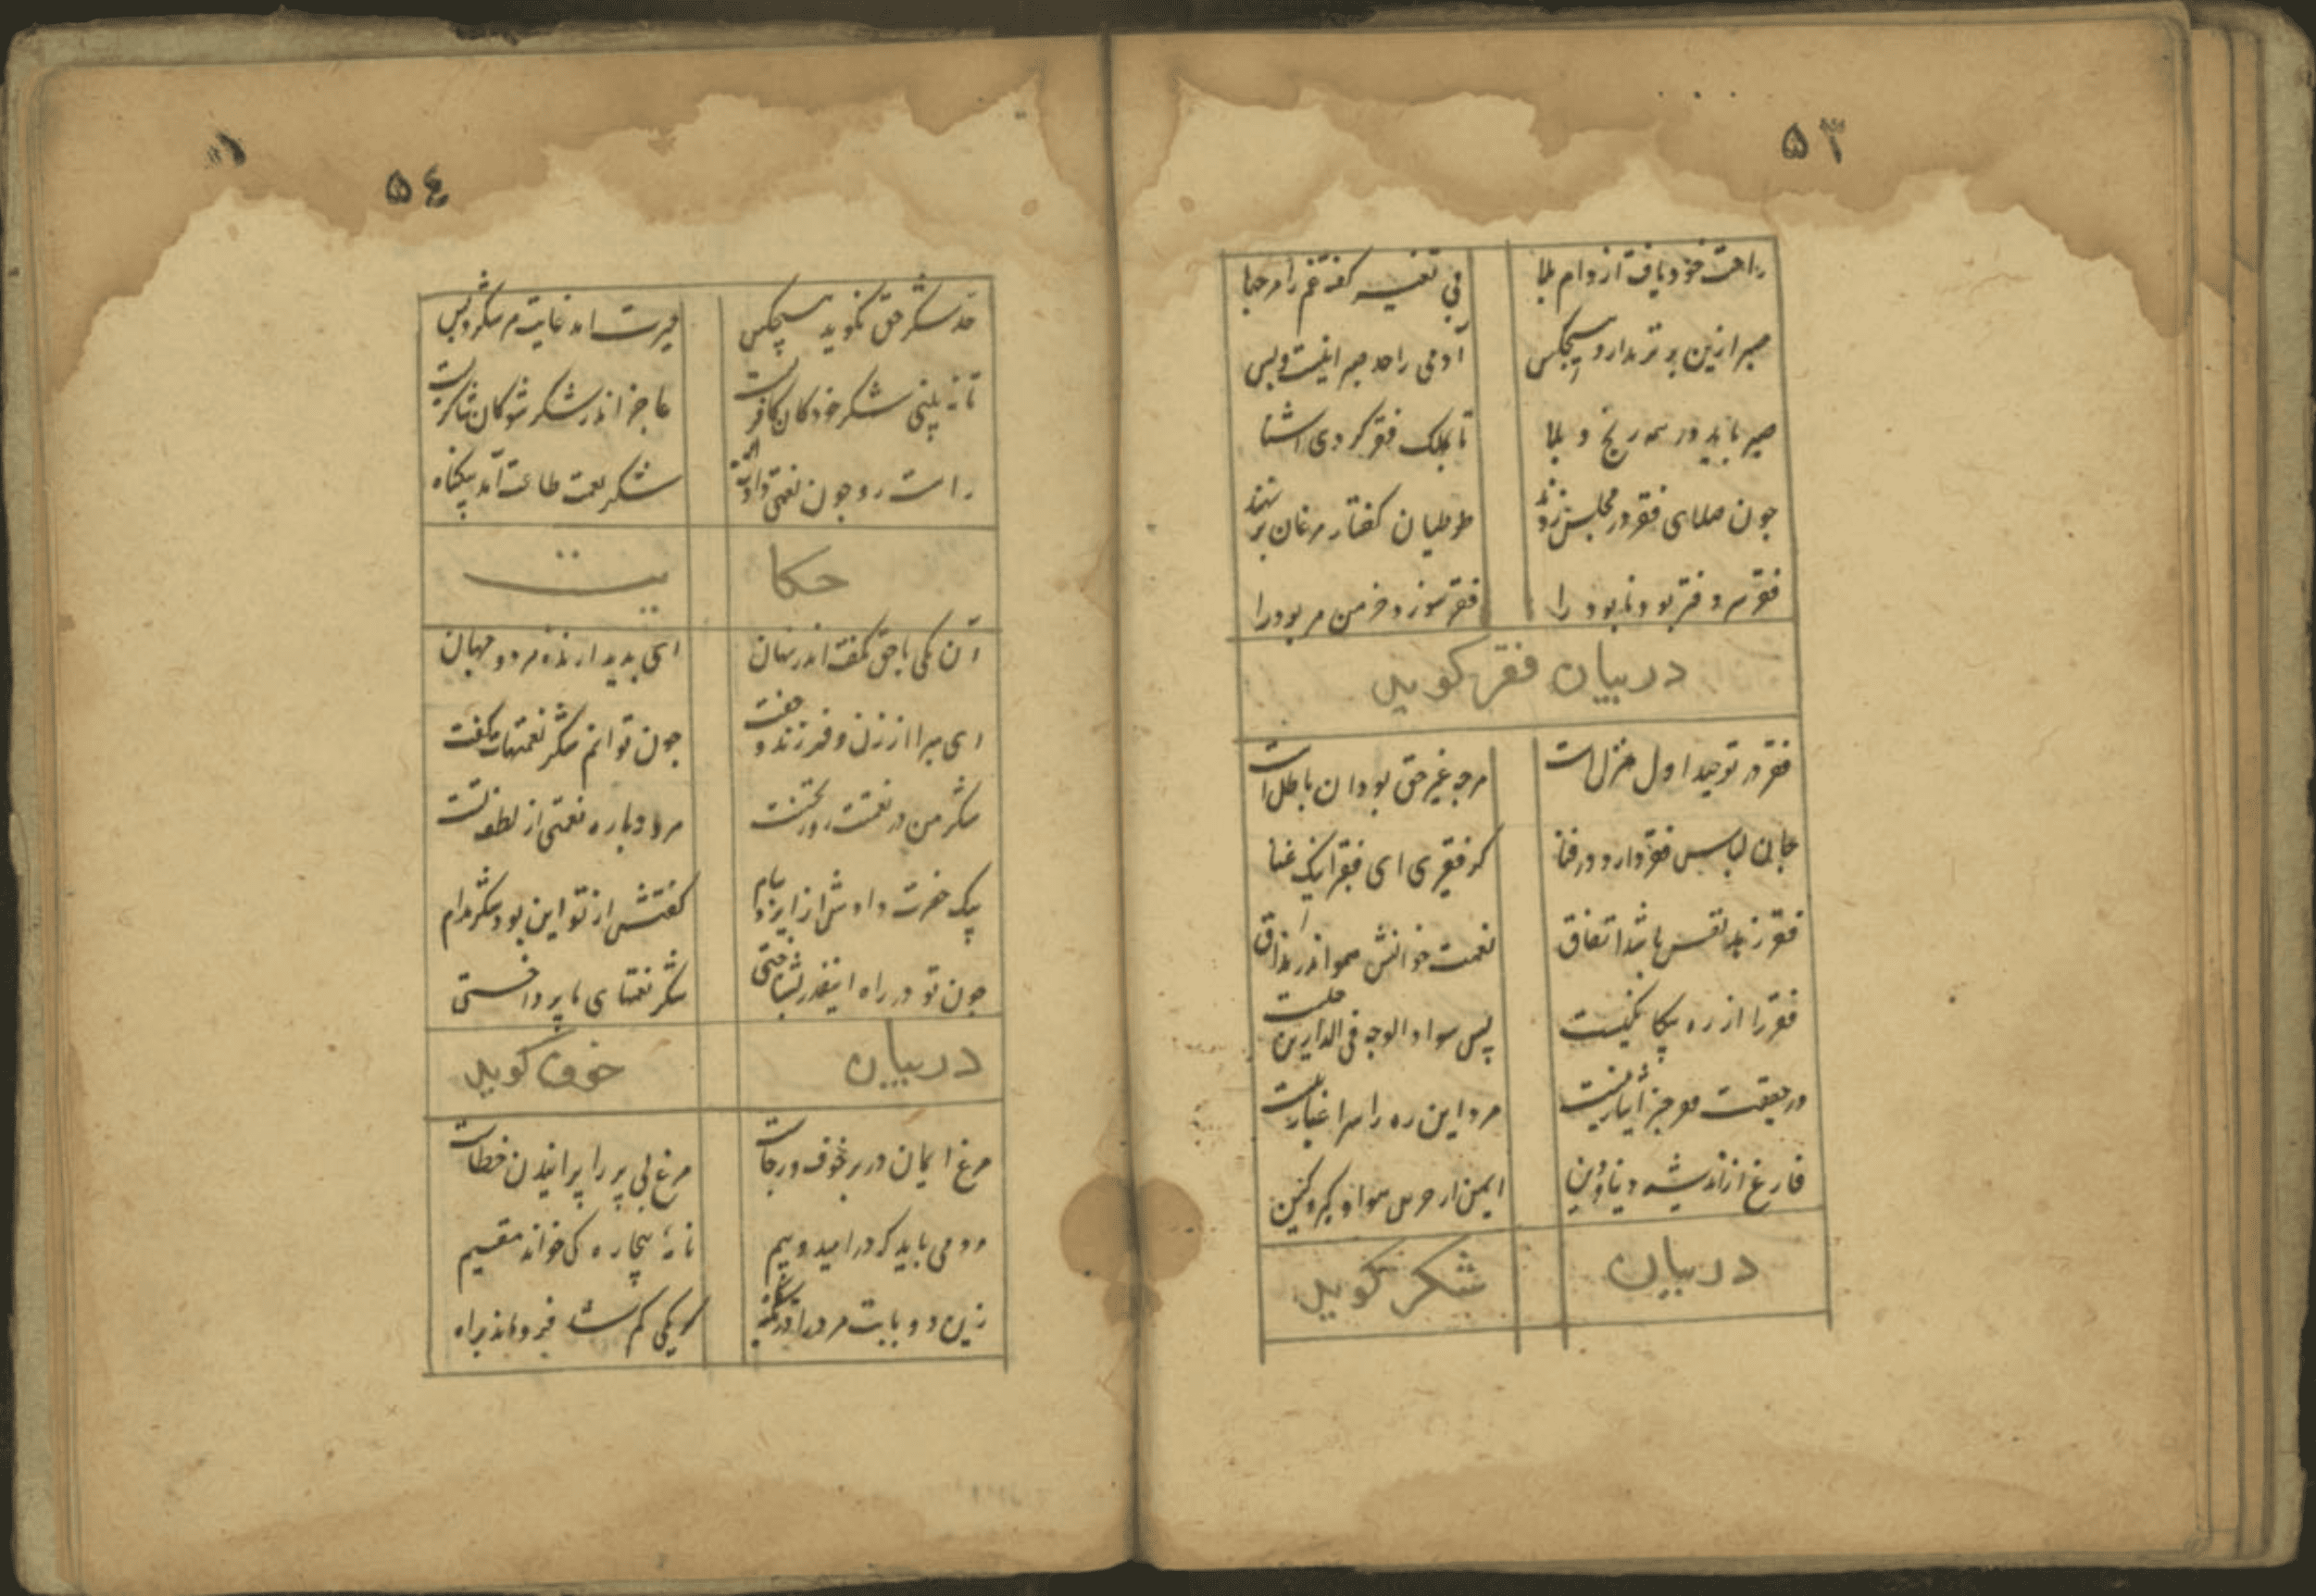 ۵۳
راحت خود یافت از دام بلا
بی تفسیر گفته غم را مرحبا
صبر ازین برتر ندارد هیچکس
آدمی را حد صبر اینست و بس
صبر باید در همه رنج و بلا
تا بملک فقر کردی آشنا
چون صلای فقر در مجلس زند
طوطیان گفتار مرغان بر نهند
فقر بود و نابود را
فقر سوزد خرمن هر بود را
در بیان فقر کوید
فقر در توحید اول منزل است
هرچه غیر حق بود آن باطل است
لباس فقر دارد در فنا
کر فقیری ای فقر اینک غنا
فقر باشد اتفاق
نعمت خوانش اندر مذاق
فقر را از ره نیست
پس سواد الوجه فی الدارین
در حقیقت ایثار نیست
مرد این ره را غبار نیست
فارغ از اندیشه دنیا و دین
ایمن از حرص هوا و کبر و کین
در بیان
شکر کوید
۵٤
حد شکر حق نکوید هیچکس
حیرت آمد غایت هر شکر و بس
تا نه بینی شکر خود کان کافریست
عاجز اندر شکر شو کان شاکریست
راست رو چون نعمتی دادت اله
شکر نعمت طاعت آمد بیکناه
حکا
یت
آن یکی با حق بگفت اندر نهان
ای پدید ارنده هر دو جهان
ای مبرا از زن و فرزند و جفت
چون توانم شکر نعمتهات گفت
شکر من در نعمت
نعمتی از لطف تست
پیک حضرت دادش از ایزد پیام
گفتش از تو این بود شکر مدام
چون تو در راه اینقدر بشناختی
شکر نعمتهای ما پرداختی
در بیان
خوف کوید
مرغ ایمان در بر خوف و رجاست
مرغ بی پر را پرانیدن خطاست
مرد می باید که در امید و بیم
نامه بیچاره کی خواند مقسیم
زین دو بابت مرد را
کر یکی کم شد فرو ماند براه